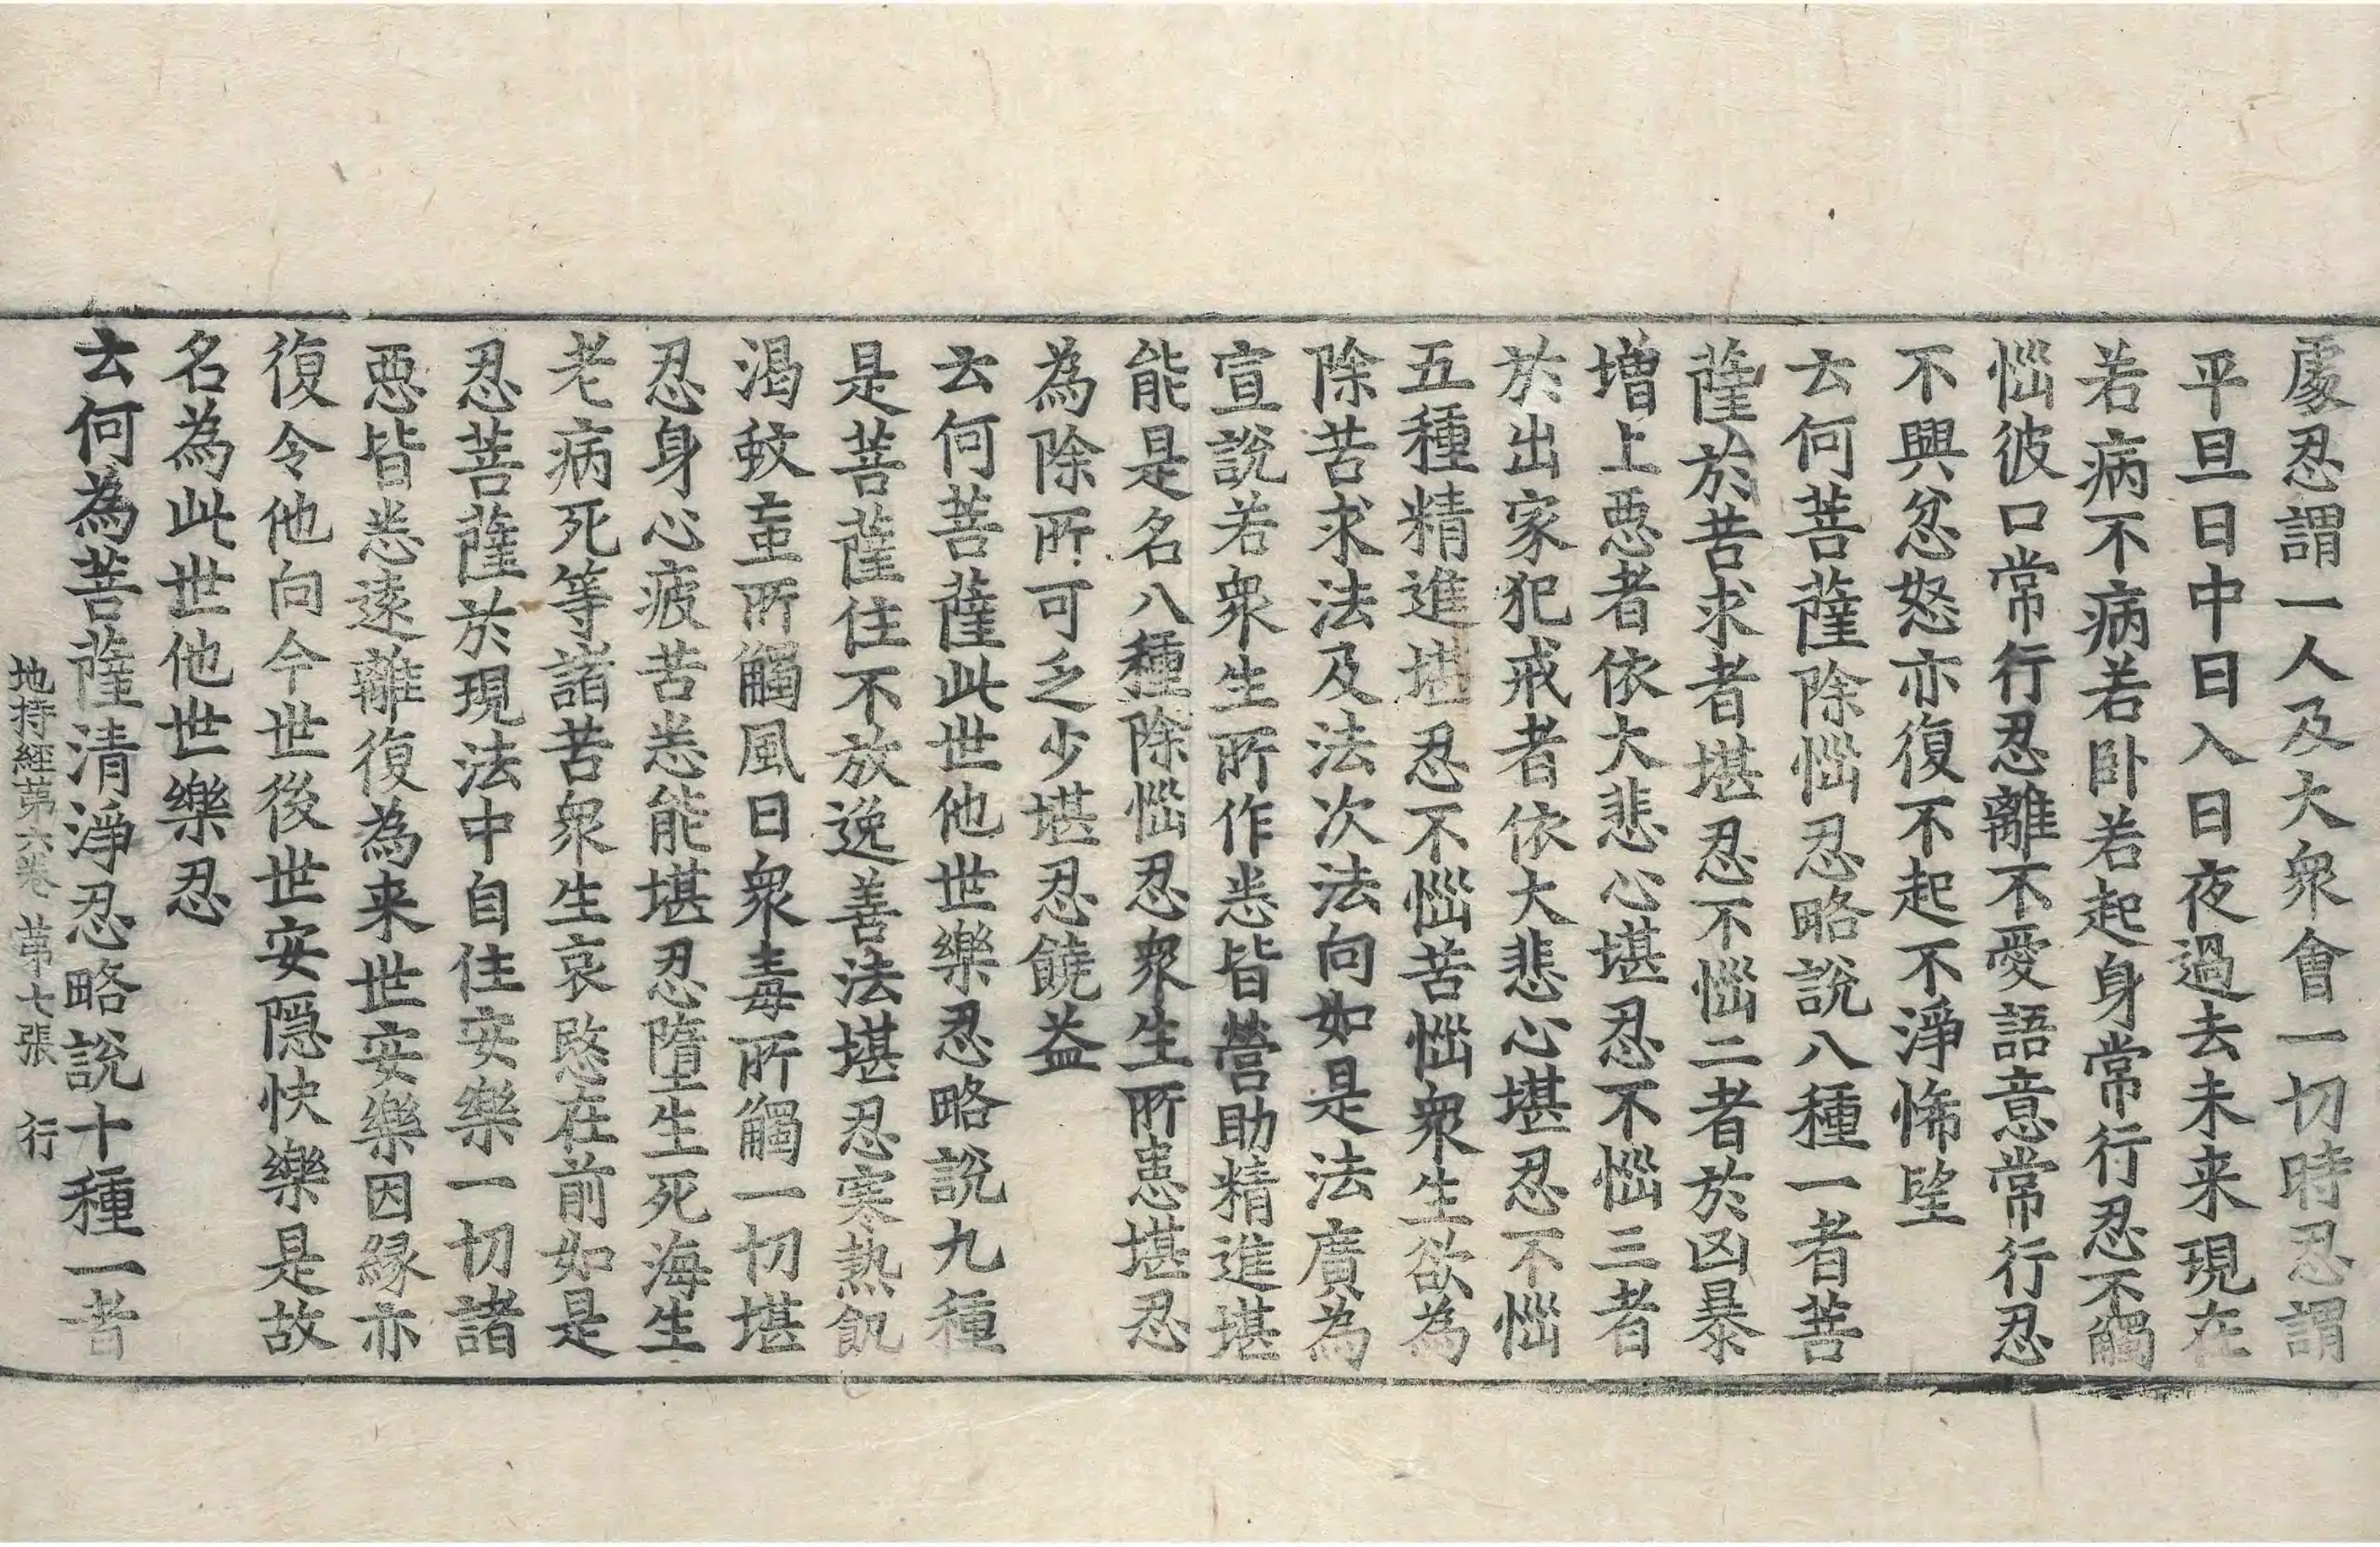 處忍謂一人及大衆會一切時忍謂
平旦日中日入日夜過去未来現在
若病不病若卧若起身常行忍不觸
惱彼口常行忍離不愛語意常行忍
不興忿怒亦復不起不淨悕望
云何菩薩除惱忍略說八種一者菩
薩於苦求者堪忍不惱二者於凶暴
增上惡者依大悲心堪忍不惱三者
於出家犯戒者依大悲心堪忍不惱
五種精進堪忍不惱苦惱衆生欲為
除苦求法及法次法向如是法廣為
宣說若衆生所作悉皆營助精進堪
能是名八種除惱忍衆生所恚堪忍
為除所可乏少堪忍饒益
云何菩薩此世他世樂忍略說九種
是菩薩住不放逸善法堪忍寒熱飢
渴蚊蝱所觸風日衆毒所觸一切堪
忍身心疲苦悉能堪忍墮生死海生
老病死等諸苦衆生哀愍在前如是
忍菩薩於現法中自住安樂一切諸
惡皆悉遠離復為来世安樂因緣亦
復令他向今世後世安隱快樂是故
名為此世他世樂忍
云何為菩薩清淨忍略說十種一者
地持經第六卷 第七張 行